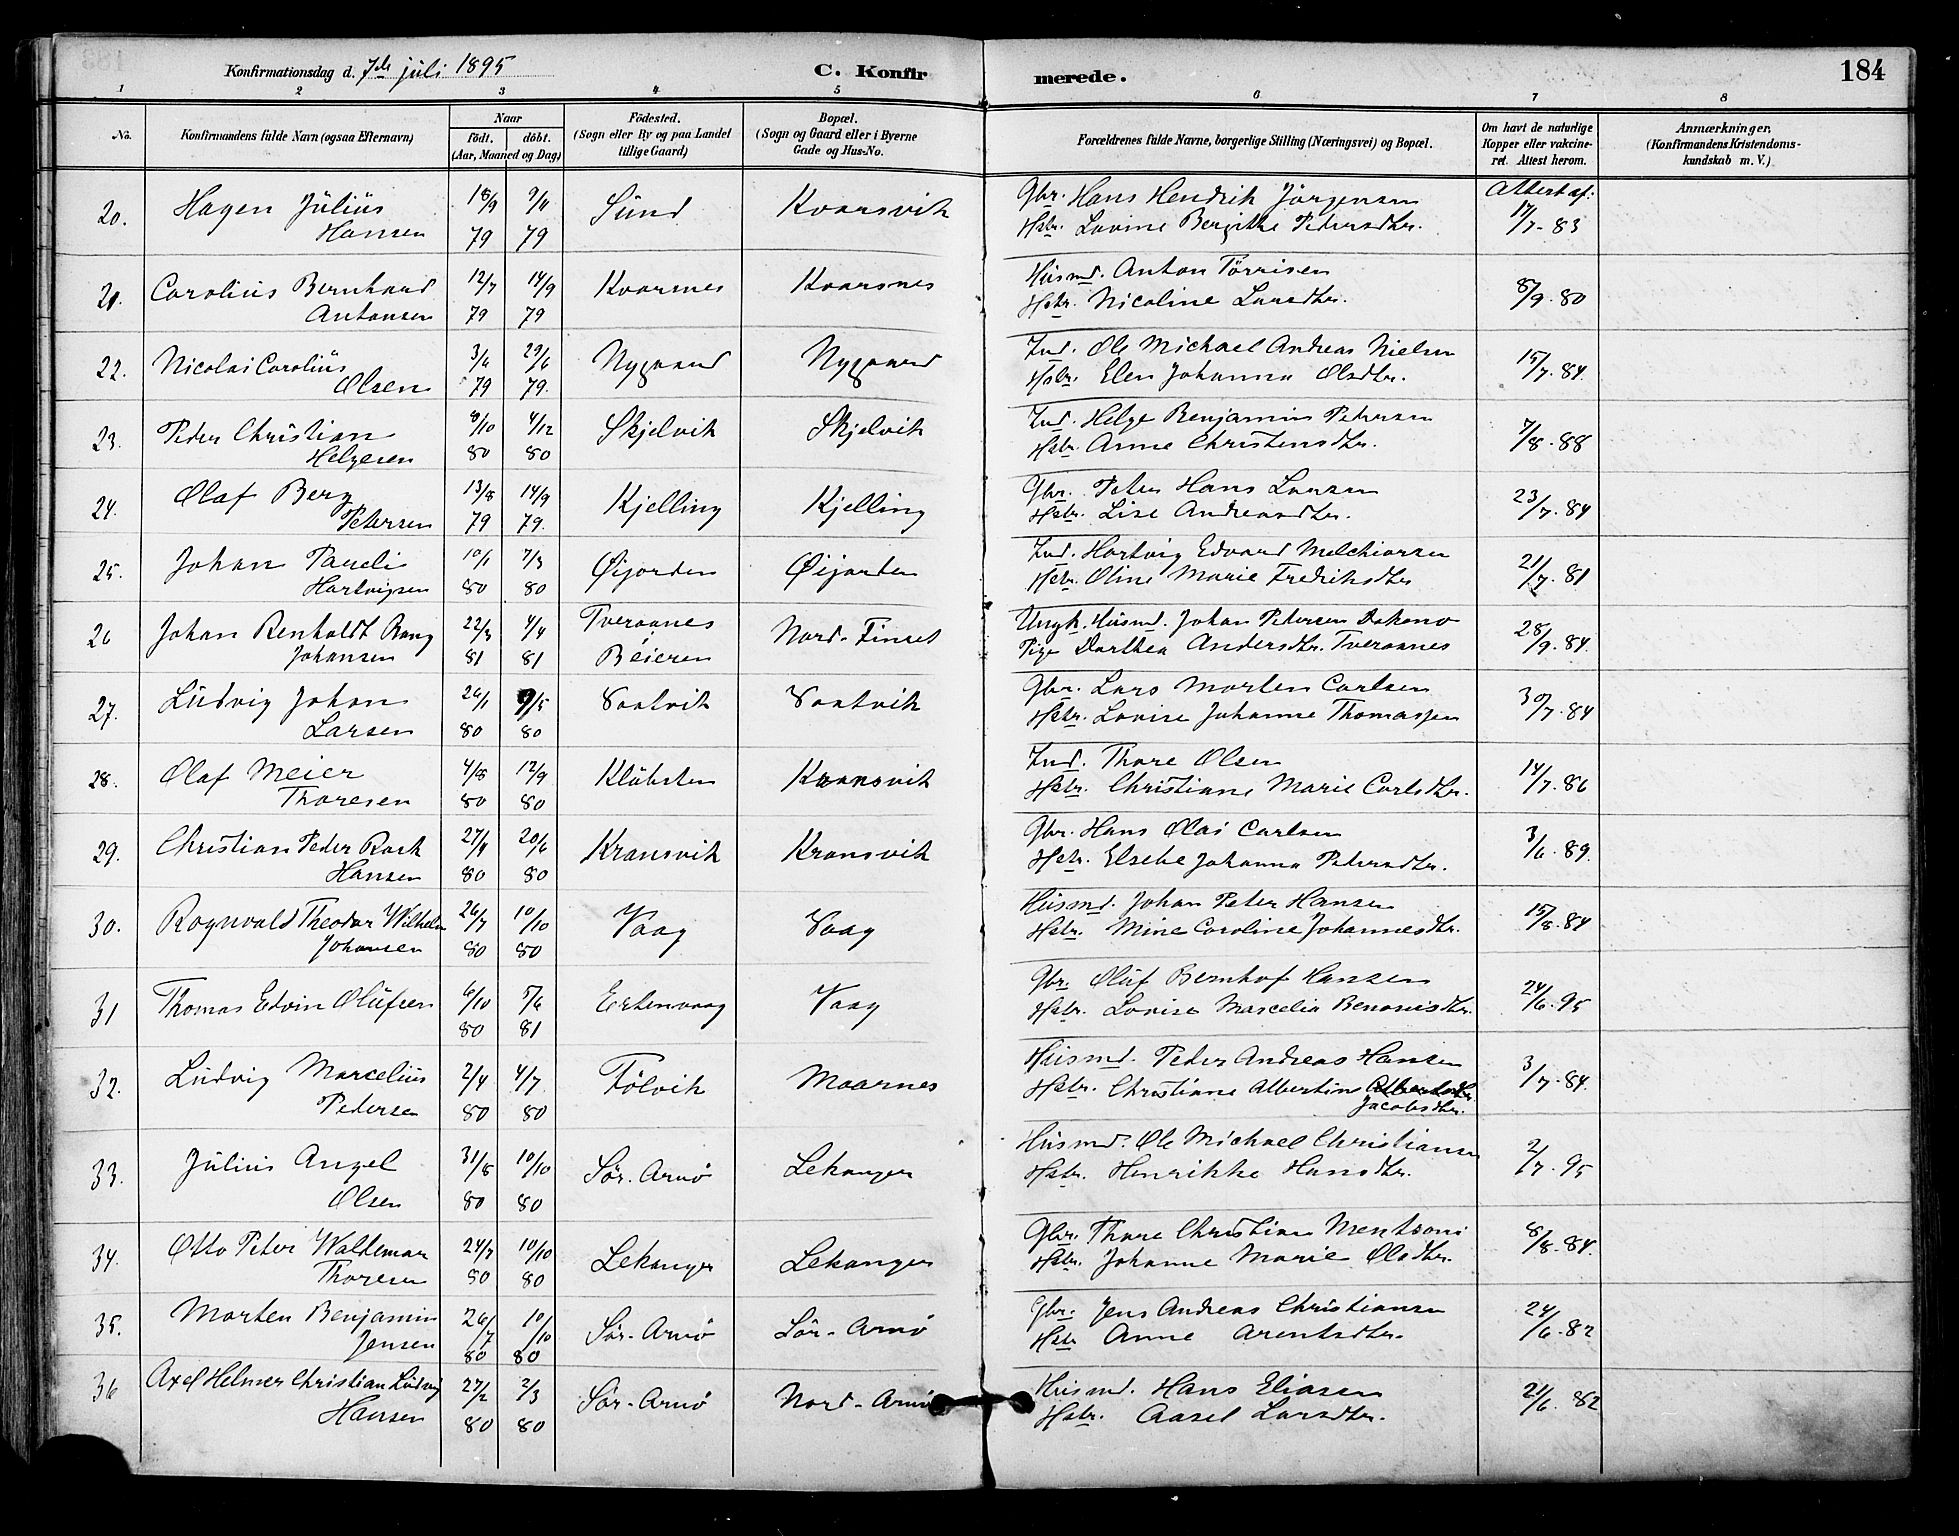 Konfirmationsdag d. 7de juli 1895
C. Konfirmerede.
184
1 2 3 4 5 6 7 8
No.
Konfirmandens fulde Navn (ogsaa Efternavn)
Naar
födt. döbt.
(Aar, Maaned og Dag)
Födested.
(Sogn eller By og paa Landet
tillige Gaard)
Bopæl.
(Sogn og Gaard eller i Byerne
Gade og Hus-No.
Forældrenes fulde Navne, borgerlige Stilling (Næringsvei) og Bopæl.
Om havt de naturlige
Kopper eller vakcine-
ret. Attest herom.
Anmærkninger.
(Konfirmandens Kristendoms-
kundskab m. V.)
20. Hagen Julius 18/9 9/11 Sund Kvarsvik Gbr. Hans Hendrik Jörgensen Attest af:
Hansen 79 79 Hstr. Lovine Bergitte Pedersdtr. 17/7-83
21. Carolius Bernhard 12/7 14/9 Kvarsnes Kvarsnes Husmd. Anton Törrisen
Antonsen 79 79 Hstr. Nicoline Larsdtr. 8/9-80
22. Nicolai Carolius 3/6 29/6 Nygaard Nygaard Ind. Ole Michael Andreas Nielsen
Olsen 79 79. Hstr. Elen Johanna Olsdtr. 15/7-84.
23. Peder Christian 9/10 4/12 Skjelvik Skjelvik Ind. Helge Benjamin Petersen
Helgesen 80 80 Hstr. Anne Christensdtr. 7/8-88
24. Olaf Berg 13/8 14/9 Kjelling Kjelling Gbr. Peter Hans Larsen
Petersen 79 79. Hstr. Lise Andreasdtr. 23/7-84
25. Johan Paueli 10/1 7/3 Øijorden Øijorden Ind. Hartvig Edvard Melchiorsen
Hartvigsen 80 80 Hstr. Oline Marie Fredriksdtr 21/7-81
26 Johan Renholdt Bang 22/3 4/4 Tveraanes Nord-Finset Ungk. Husmd. Johan Petersen
Johansen 81 81 Beieren Pige Dorthea Andersdtr. Tveraanes 28/9-84.
27. Ludvig Johan 26/1 9/5 Saatvik Saatvik Gbr. Lars Morten Carlsen
Larsen 80 80 Hstr. Lovise Johanne Thomassen 30/7-84
28. Olaf Meier 4/8 12/9 Klöksten Kransvik Ind. Thore Olsen
Thoresen 80 80 Hstr. Christiane Marie Carlsdtr. 14/7-86
29. Christian Peder Rask 27/4 20/6 Kransvik Kransvik Gbr. Hans Olai Carlsen
Hansen 80 80 Hstr. Elsebe Johanna Petersdtr. 3/6-89.
30. Rognvald Theodor Wilhelm 26/7 10/10 Vaag Vaag Husmd. Johan Peter Hansen
Johansen 80 80 Hstr. Mine Caroline Johannesdtr. 15/8-84
31 Thomas Edvin Olufsen 6/10 5/6 Ertenvaag Vaag Gbr. Oluf Bernhof Hansen
80 81 Hstr. Lovise Marcelia Benonisdtr. 24/6-95
32. Ludvig Marcelius 2/4 4/7 Fölvik Maarnes Husmd. Peder Andreas Hansen
Pedersen 80 80 Hstr. Christiane Albertine 3/7-84.
Jacobsdtr.
33. Julius Angel 31/8 10/10 Sör-Arnö Lekanger Husmd. Ole Michael Christiansen
Olsen 80 80 Hstr. Henrikke Hansdtr. 2/7-95
34. Otto Peter Waldemar 24/7 10/10 Lekanger Lekanger Gbr. Thore Christian Mentsoni
Thoresen 80 80 Hstr. Johanne Marie Olsdtr. 8/8-84.
35. Morten Benjamin 26/7 10/10 Sör-Arnö Sör-Arnö Gbr. Jens Andreas Christiansen
Jensen 80 80 Hstr Anne Arentsdtr. 24/6-82
36 Axel Helmer Christian Ludvig 27/2 2/3 Sör-Arnö Nord-Arnö Husmd. Hans Eliasen
Hansen 80 80 Hstr. Aasel Larsdtr. 21/6-82